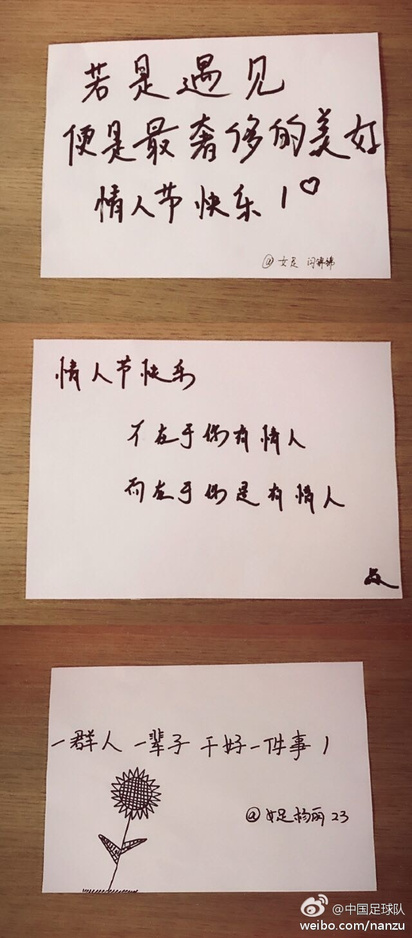 若是遇见
便是最奢侈的美好
情人节快乐!
@女足
情人节快乐
不在于你有情人
而在于你是有情人
一群人 一辈子 干好一件事!
@女足杨丽 23
@中国足球队
weibo.com/nanzu